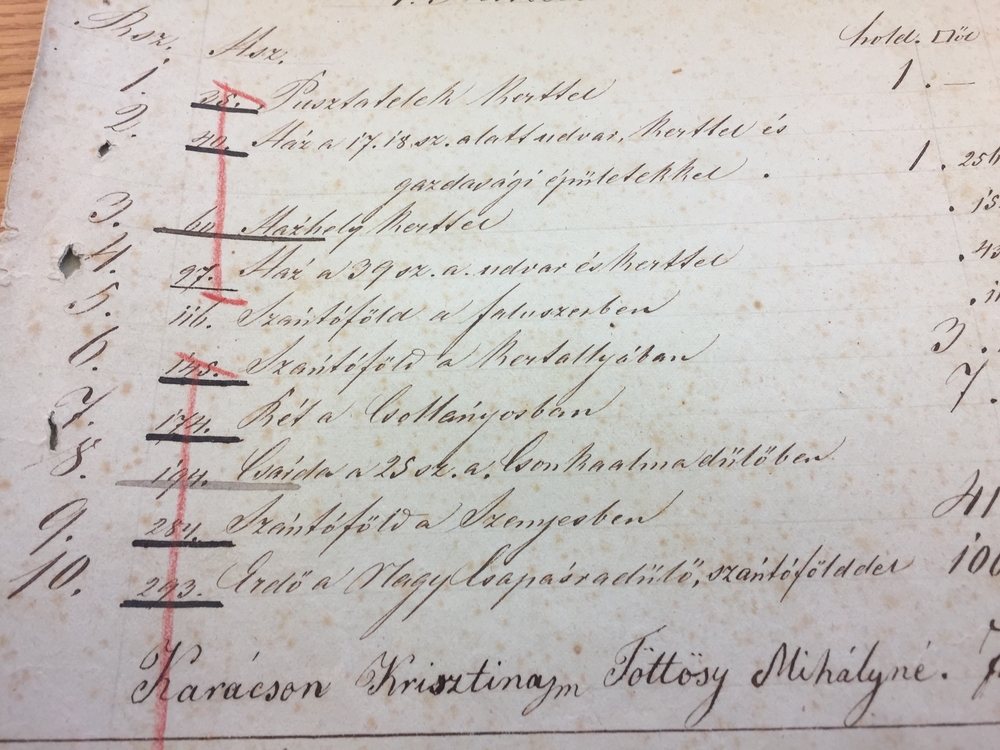 Rsz. Hsz. hold. □öl
1. 38. Pusztatelek kerttel 1. —
2. 40. Ház a 17. 18. sz. alatt udvar, kerttel és
gazdasági épületekkel. 1.
3. 60. Házhely kerttel
4. 97. Ház a 39 sz. a. udvar és kerttel
5. 116. Szántóföld a faluszerben
6. 145. Szántóföld a Kertallyában 3.
7. 174. Rét a Csollányosban 7.
8. 194. Csárda a 25 sz. a. Csonkaalma dülőben
9. 284. Szántóföld a Szemjesben 41
10. 293. Erdő a Nagy Csapásra dülő, szántófölddel 100
Karácson Krisztina jm Töttösy Mihályné.